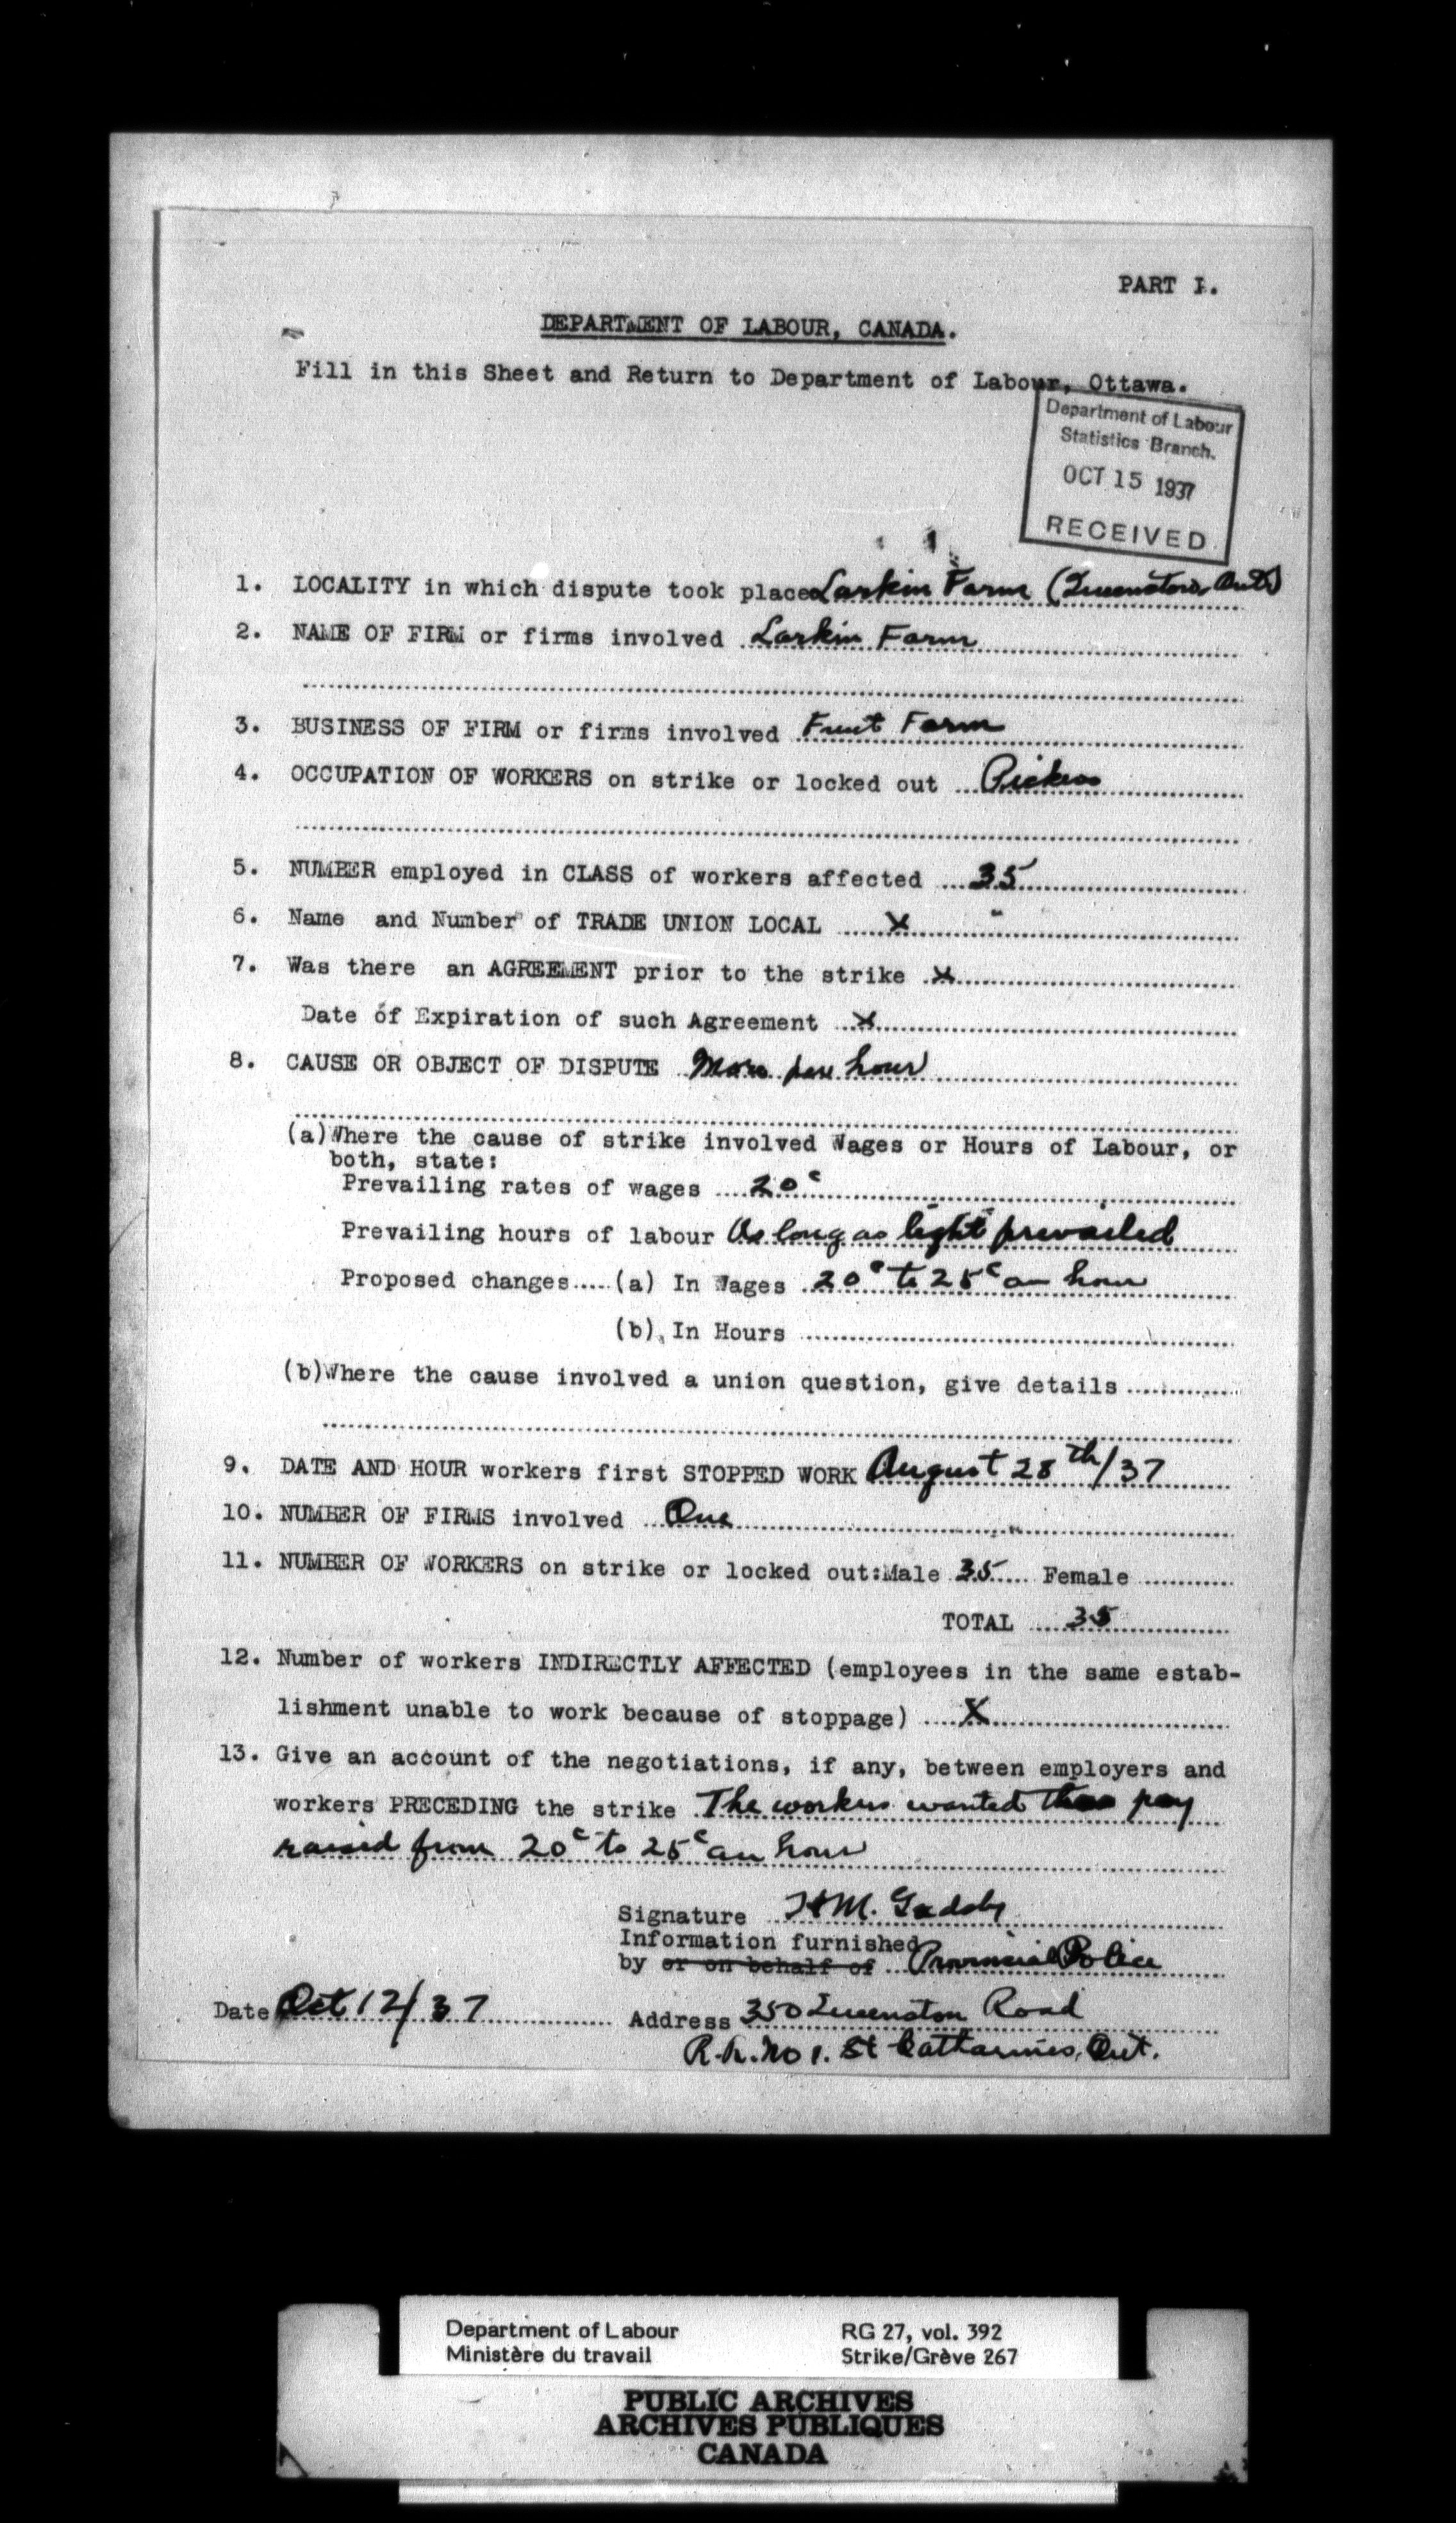 PART I.
DEPARTMENT OF LABOUR, CANADA.
Fill in this Sheet and Return to Department of Labour, Ottawa.
Department of Labour
Statistics Branch.
OCT 15 1937
RECEIVED
1. LOCALITY in which dispute took place Larkin Farm (Queenston, Ont)
2. NAME OF FIRM or firms involved Larkin Farm
3. BUSINESS OF FIRM or firms involved Fruit Farm
4. OCCUPATION OF WORKERS on strike or locked out Pickers
5. NUMBER employed in CLASS of workers affected 35
6. Name and Number of TRADE UNION LOCAL X
7. Was there an AGREEMENT prior to the strike X
Date of Expiration of such Agreement X
8. CAUSE OR OBJECT OF DISPUTE More per hour
(a) Where the cause of strike involved Wages or Hours of Labour, or
both, state:
Prevailing rates of wages 20c
Prevailing hours of labour As long as light prevailed
Proposed changes.....(a) In Wages 20c to 25c an hour
(b) In Hours
(b) Where the cause involved a union question, give details
9. DATE AND HOUR workers first STOPPED WORK August 28th/37
10. NUMBER OF FIRMS involved One
11. NUMBER OF WORKERS on strike or locked out: Male 35 Female
TOTAL 35
12. Number of workers INDIRECTLY AFFECTED (employees in the same estab-
lishment unable to work because of stoppage) X
13. Give an account of the negotiations, if any, between employers and
workers PRECEDING the strike The workers wanted pay
raised from 20c to 25c an hour
Signature H M. Gadsby
Information furnished
by or on behalf of Provincial Police
Date Oct 12/37 Address 350 Queenston Road
R.R. No 1. St Catharines, Ont.
Department of Labour RG 27, vol. 392
Ministère du travail Strike/Grève 267
PUBLIC ARCHIVES
ARCHIVES PUBLIQUES
CANADA